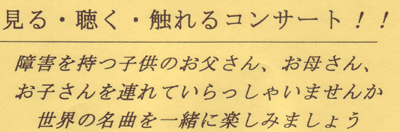 見る・聴く・触れるコンサート！！
障害を持つ子供のお父さん、お母さん、
お子さんを連れていらっしゃいませんか
世界の名曲を一緒に楽しみましょう